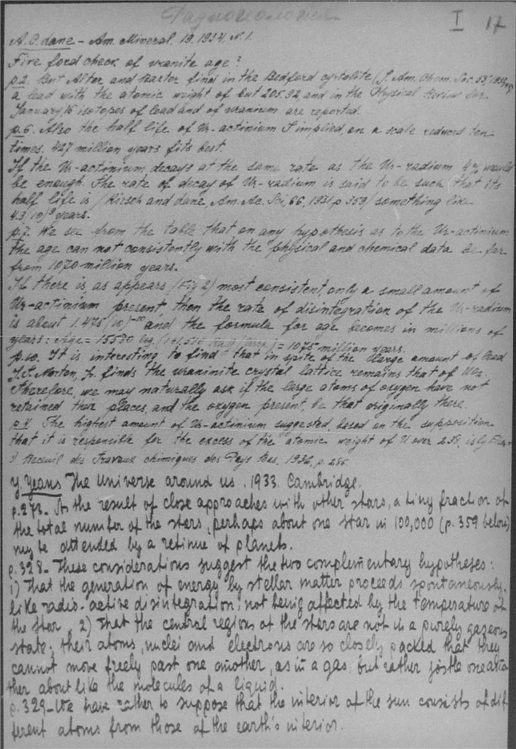 Радиогеология
I 17
A. C. Lane - Am. Mineral, 19, 1934, N. 1.
Five ford check of uranite age:
p.2. But Alter, and Baxter find in the Bedford cyrtolite (J. Am. Chem. Soc. 53,
a lead with the atomic weight of but 205.92 and in the Physical Review for
January 15 isotopes of lead and of uranium are reported.
p.6. Also the half life of Ur-actinium I implied, on a scale reduced ten
times. 427 million years fits best.
If the Ur-actinium decays at the same rate as the Ur-radium 4% would
be enough. The rate of decay of Ur-radium is said to be such that its
half life is (Kirsch and Lane, Am. Ac. Sci, 66, 1931, p 359) something like
4.3 (10)9 years.
p.7. We see from the table that on any hypothesis as to the Ur-actinium
the age can not consistently with the physical and chemical data be far
from 1020 million years.
If there is as appears (Fig 2) most consistent only a small amount of
Ur-actinium present, then the rate of disintegration of the Ur-radium
is about 1.495 (10)-10 and the formula for age becomes in millions of
years: Age = 15530 log = 1075 million years.
p.10. It is interesting to find that in spite of the large amount of lead
F. A. finds the uraninite crystal lattice remains that of UO2.
Therefore, we may naturally ask if the large atoms of oxygen have not
retained their places, and the oxygen present, be that originally there.
The highest amount of Ur-actinium suggested, based on the supposition
that it is responsible for the excess of the atomic weight of U over 238, is
Recueil des Travaux chimiques des Pays Bas, p. 255
Y Yeans The Universe around us. 1933. Cambridge.
p.273. In the result of close approaches with other stars, a tiny fraction of
the total number of the stars, perhaps about one star in 100,000 (p. 359 below)
my be attended by a retinue of planets.
p.328 - These considerations suggest the two complementary hypotheses:
1) That the generation of energy by stellar matter proceeds spontaneously,
like radio-active disintegration; not being affected by the temperature of
the star, 2) That the central regions of the stars are not in a purely gazeous
state; their atoms, nuclei and electrons are so closely packed that they
cannot move freely past one another, as in a gas, but rather jostle one ano
ther about like the molecules of a liquid.
p.329 - We have rather to suppose that the interior of the sun consists of dif
ferent atoms from those of the earth's interior.